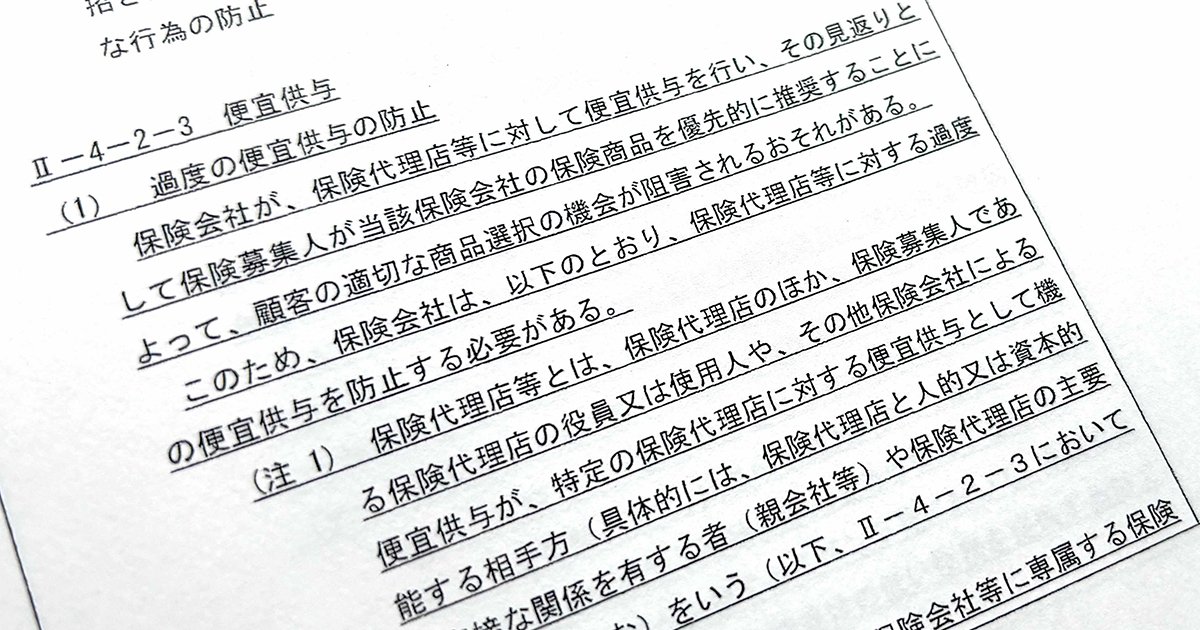 な行為の防止
Ⅱ－４－２－３　便宜供与
（1）　過度の便宜供与の防止
保険会社が、保険代理店等に対して便宜供与を行い、その見返りと
して保険募集人が当該保険会社の保険商品を優先的に推奨することに
よって、顧客の適切な商品選択の機会が阻害されるおそれがある。
このため、保険会社は、以下のとおり、保険代理店等に対する過度
の便宜供与を防止する必要がある。
（注 1）　保険代理店等とは、保険代理店のほか、保険募集人であ
る保険代理店の役員又は使用人や、その他保険会社による
便宜供与が、特定の保険代理店に対する便宜供与として機
能する相手方（具体的には、保険代理店と人的又は資本的
接な関係を有する者（親会社等）や保険代理店の主要
）をいう（以下、Ⅱ－４－２－３において
保険会社等に専属する保険